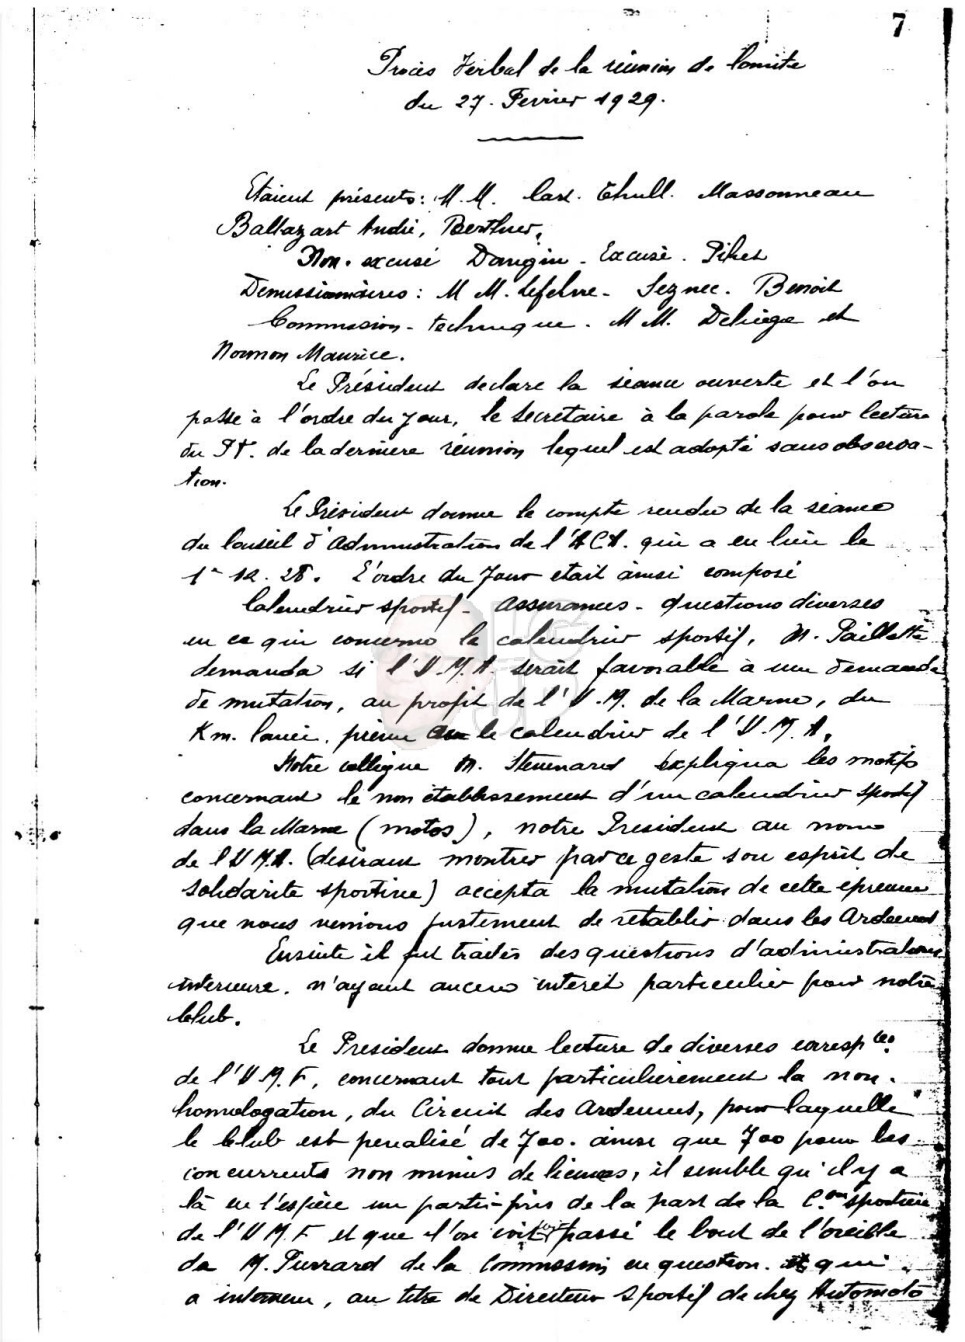 7
Procès Verbal de la réunion de Comité
du 27. Fevrier 1929.
Etaient présents: M.M. Thull. Massonneau
Baltazart André, Berthier,
Non. excusé Dangin. Excusé. Pihet
Demissionnaires: M M. Lefebvre. Seznec. Benoit
Commission. technique. M M. Deliège et
Nounon Maurice.
Le Président declare la séance ouverte et l'on
passe à l'ordre du Jour, le secretaire à la parole pour lecture
du P.V. de la dernière réunion lequel est adopté sans observa-
tion.
Le Président donne le compte rendu de la séance
du Conseil d'administration de l'A C A. qui a eu lieu le
1er 12. 28. L'ordre du Jour etait ainsi composé
Calendrier sportif. assurances. questions diverses
en ce qui concerne le calendrier sportif, M. Paillette
demanda si l'U.M.A. serait favorable à une demande
de mutation, au profit de l'U.M. de la Marne, du
Km. lancé, prévu au le calendrier de l'U.M.A.
Notre collègue M. expliqua les motifs
concernant le non établissement d'un calendrier sportif
dans la Marne (motos), notre President au nom
de l'U M A. (désirant montrer par ce geste son esprit de
solidarite sportive) accepta la mutation de cette épreuve
que nous venions justement de rétablir dans les Ardennes
Ensuite il fut traités des questions d'administration
interieure. n'ayant aucun interêt particulier pour notre
Club.
Le President donne lecture de diverses corresp ces.
de l'U.M.F, concernant tout particulièrement la non.
homologation, du Circuit des Ardennes, pour laquelle
le Club est penalisé de 700. ainsi que 700 pour les
concurrents non munis de licences, il semble qu'il y a
là en l'espèce un parti-pris de la part de la C.on sportive
de l'U M F et que l'on voit passé le bout de l'oreille
de M. Purrard de la Commission en question. qui
a interieur, au titre de Directeur Sportif de chez Automoto